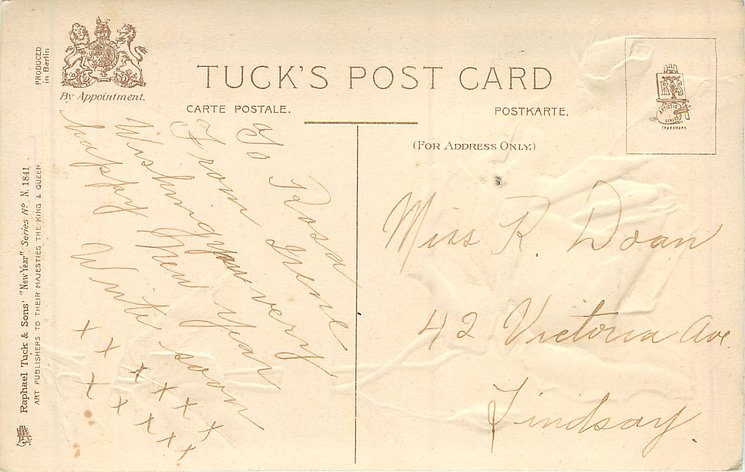 TUCK'S POST CARD
CARTE POSTALE.
POSTKARTE.
(FOR ADDRESS ONLY.)
By Appointment.
PRODUCED
in Berlin
Raphael Tuck & Sons' "New Year" Series Nº N. 1841.
ART PUBLISHERS TO THEIR MAJESTIES THE KING & QUEEN
TRADEMARK
To Rosa
From Irene
Wishing you very
happy New Year
Write soon
x x x x x x
x x x x x
Miss R. Doan
42 Victoria Ave
Lindsay